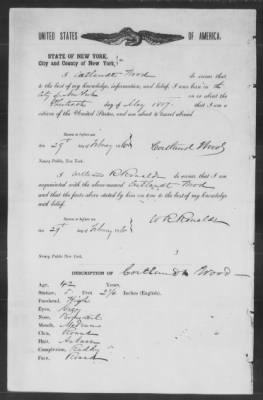 UNITED STATES OF AMERICA.
STATE OF NEW YORK,
City and County of New York,
I Cortlandt Wood do swear that
to the best of my knowledge, information, and belief, I was born in the
City of New York on or about the
day of May 1807; that I am a
citizen of the United States, and am about to travel abroad.
Sworn to before me
this 29th
Cortlandt Wood
Notary Public, New York.
I William R Ronalds do swear that I am
acquainted with the above-named Cortlandt Wood
and that the facts above stated by him are true to the best of my knowledge
and belief.
Sworn to before me
this 29th
W R Ronalds
Notary Public, New York.
DESCRIPTION OF Cortlandt Wood
Age, 42 Years.
Stature, 5 Feet 2 ¾ Inches (English).
Forehead, High
Eyes,
Nose,
Mouth, Medium
Chin, Round
Hair, Auburn
Complexion, Ruddy
Face, Round